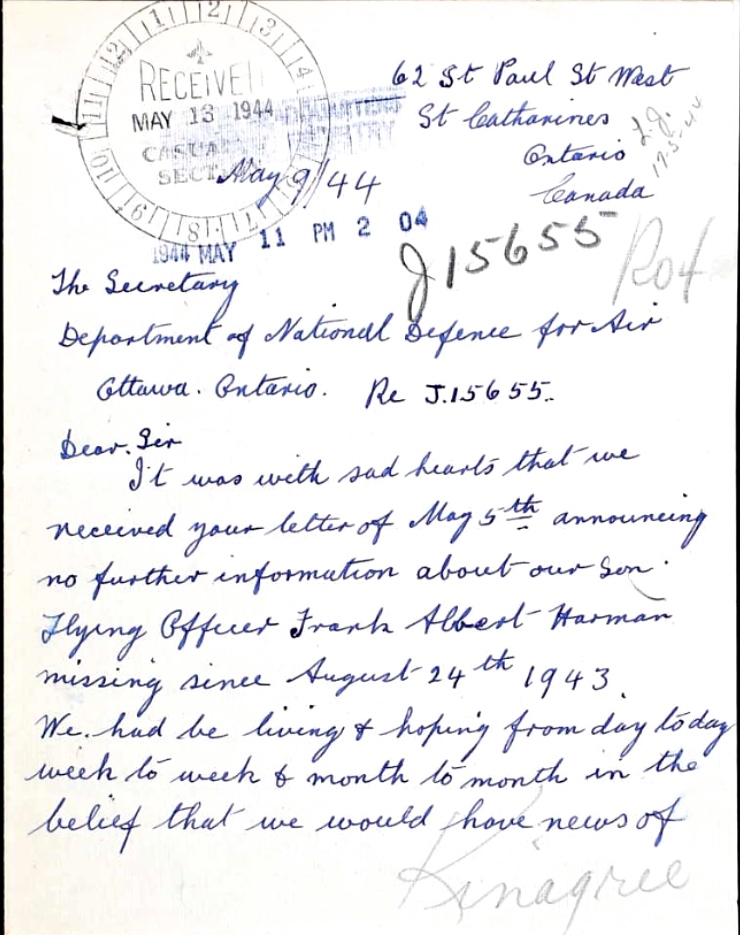 12 1 2 3 4
RECEIVED
MAY 13 1944
CASUA
SECT
11 10 9 8 7
62 St Paul St West
St Catharines
Ontario
Canada
L.J.
17-5-44
May 9/44
1944 MAY 11 PM 2 04
J15655
Rof
The Secretary
Department of National Defence for Air
Ottawa. Ontario. Re J.15655.
Dear. Sir
It was with sad hearts that we
received your letter of May 5th announcing
no further information about our Son.
Flying Officer Frank Albert Harman
missing since August 24th 1943.
We. had be living & hoping from day to day
week to week & month to month in the
belief that we would have news of